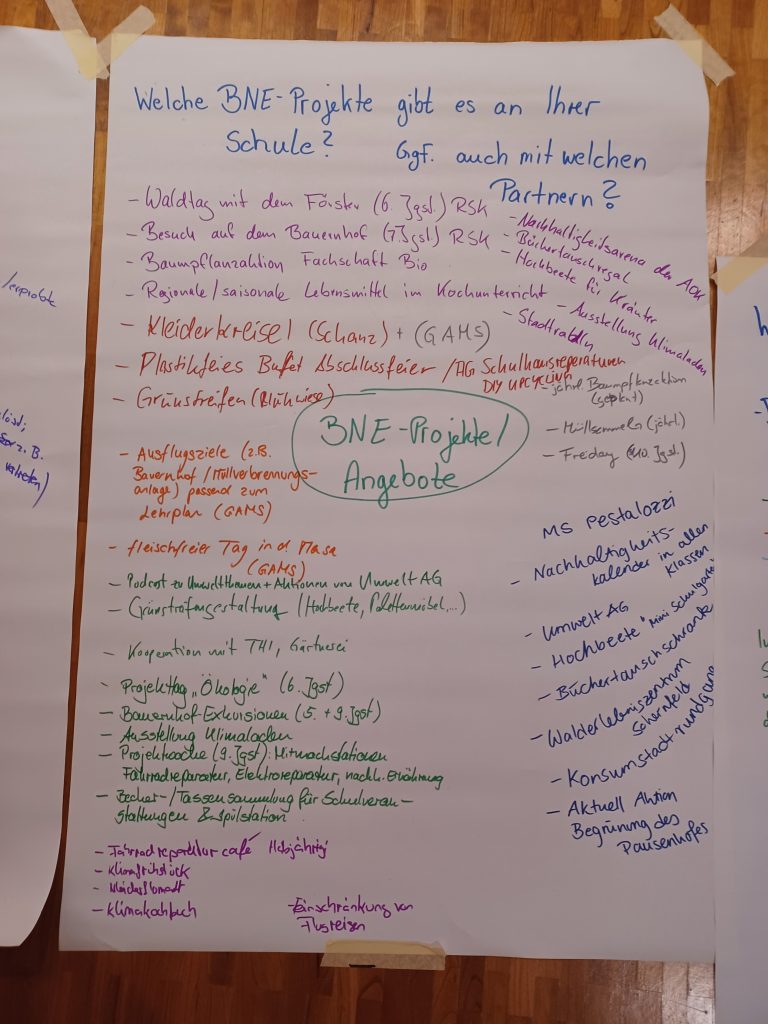 Welche BNE-Projekte gibt es an Ihrer
Schule? Ggf. auch mit welchen
Partnern?
- Waldtag mit dem Förster (6. Jgst.) RSK
- Besuch auf dem Bauernhof (7. Jgst.) RSK
- Baumpflanzaktion Fachschaft Bio
- Regionale/saisonale Lebensmittel im Kochunterricht
- Nachhaltigkeitsarena der AOK
- Büchertauschregal
- Hochbeete für Kräuter
- Ausstellung Klimaladen
- Stadtrally
- Kleiderkreisel (Schanz) + (GAMS)
- Plastikfeies Bufet Abschlussfeier / AG Schulhausreperaturen
DIY UPCYCLING
- Grünstreifen (Blühwiese)
- jährl. Baumpflanzaktion
(geplant)
- Müllsammeln (jährl.)
- Freiday (10. Jgst.)
BNE-Projekte/
Angebote
- Ausflugsziele (z.B.
Bauernhof / Müllverbrennungs-
anlage) passend zum
Lehrplan (GAMS)
- fleischfreier Tag in d. Mensa
(GAMS)
- Podcast zu Umweltthemen + Aktionen von Umwelt AG
- (Hochbeete, Palettenmöbel,...)
- Kooperation mit THI, Gärtnerei
- Projekttag „Ökologie" (6. Jgst)
- Bauernhof-Exkursionen (5. + 9. Jgst)
- Ausstellung Klimaladen
- Projektwoche (9. Jgst): Mitmachstationen
Fahrradreparatur, Elektroreparatur, nachh. Ernährung
- Becher-/Tassensammlung für Schulveran-
staltungen & Spülstation
- Fahrradreperaturcafé Halbjährig
- Klimafrühstück
- Klimakochbuch
- Einschränkung von
Flugreisen
MS Pestalozzi
- Nachhaltigkeits-
kalender in allen
Klassen
- Umwelt AG
- Hochbeete "Mini Schulgarten"
- Büchertauschschrank
- Walderlebniszentrum
Schernfeld
- Konsumstadtrundgang
- Aktuell Aktion
Begrünung des
Pausenhofes
z. B.